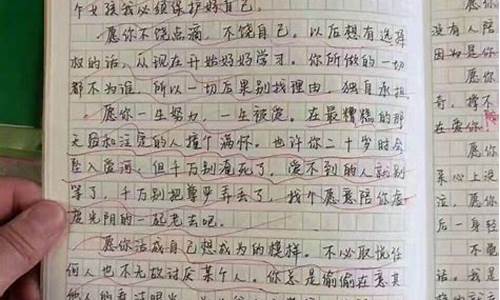 个女孩我必须保护好自己。
愿你不饶点痛，不饶自己。以后想有选择
权的话，从现在开始好好学习。你所做的一切
都不为谁，所以一切后果别找理由，独自承担
愿你一生努力，一生被爱。在最糟糕的那
天与和注定的人撞个满怀。也许你二十岁时会
坠入爱河，但千万别淹死了，爱不到的人就别
等了，千万别把尊严弄丢了，找个愿意陪你虚
度光阴的一起老去吧。
愿你活成自己想成为的模样。不必取悦任
何人也不无故讨厌某个人，你总是偷偷在意其
没有人陪
因为是你
愿你
奇，撑不
在爱你
愿你
亲
注。
后
一身轻
不
话